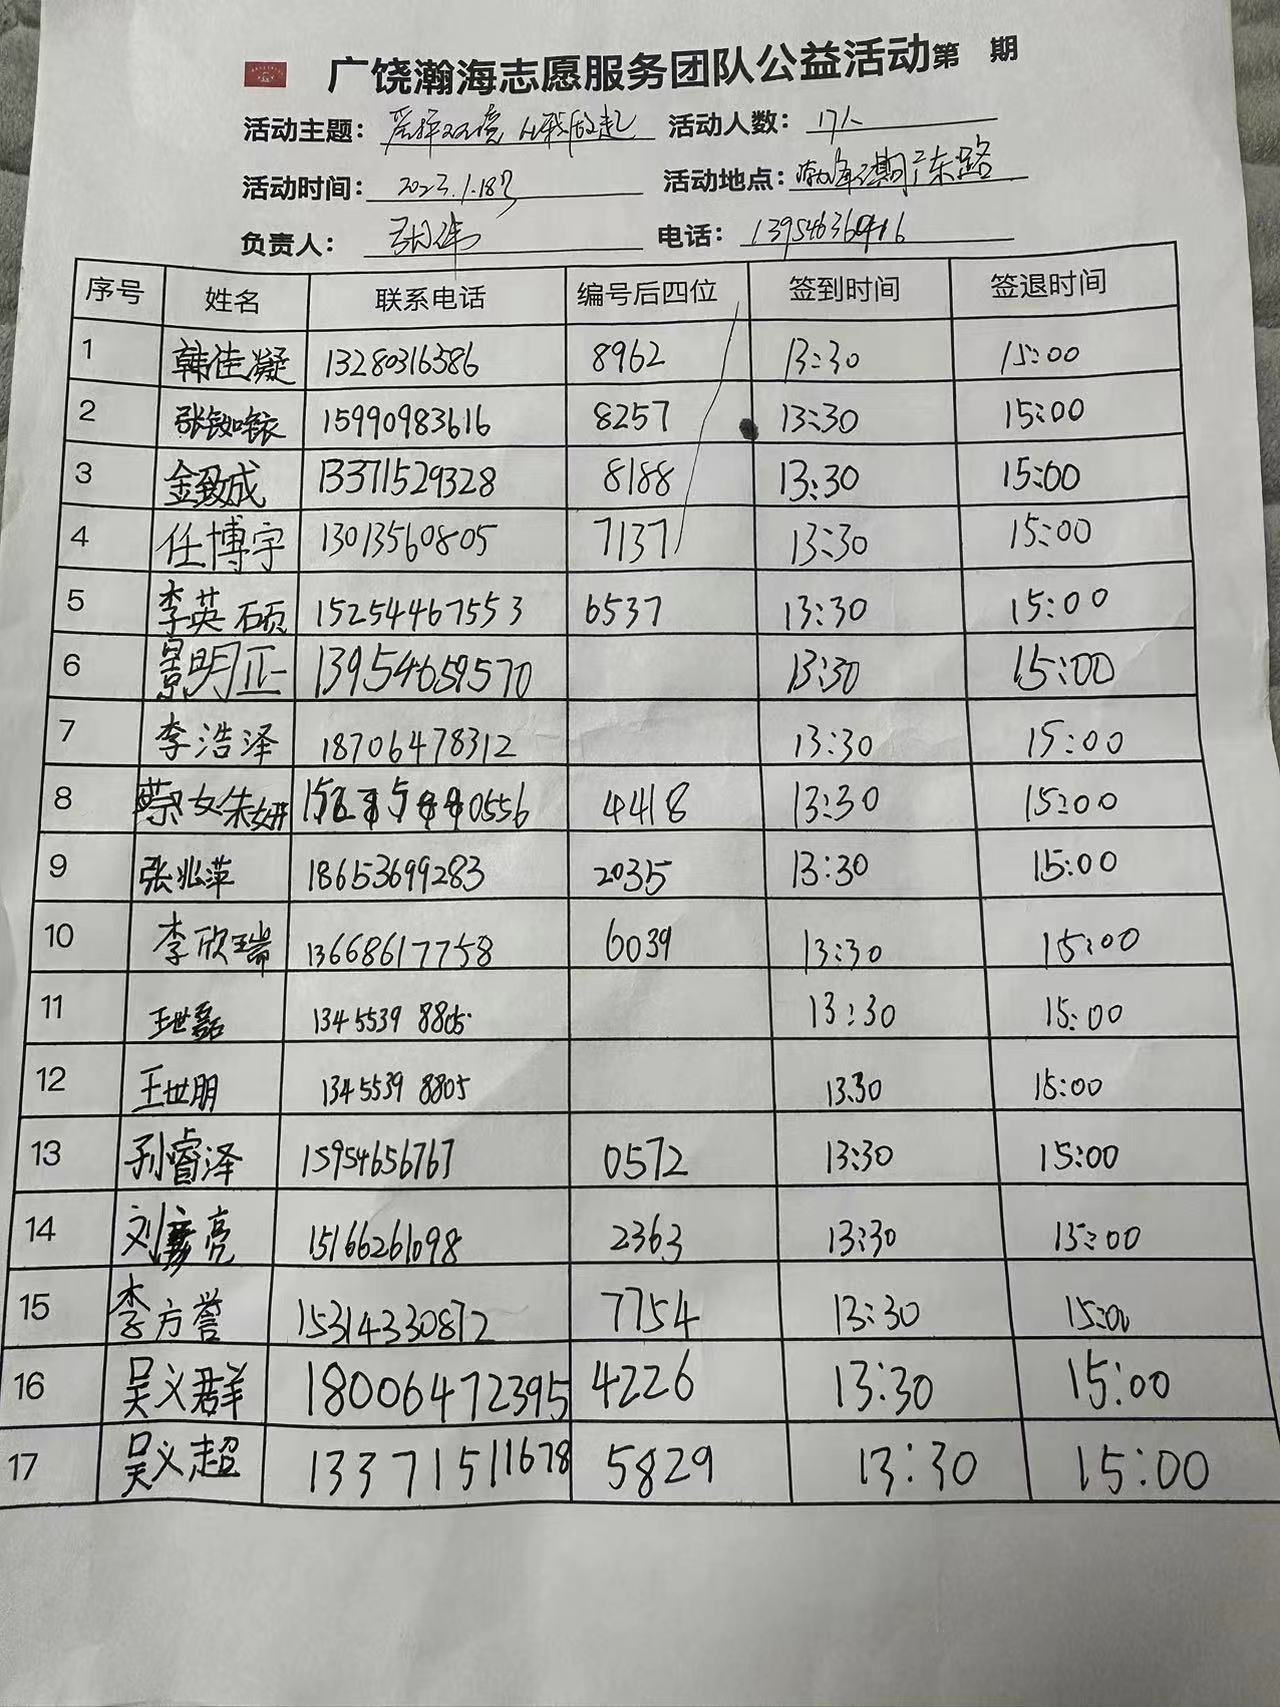 广饶瀚海志愿服务团队公益活动第 期
活动主题： 爱护环境 从我做起 活动人数： 17人
活动时间： 2023.1.18号 活动地点： 期广东路
负责人： 电话： 13954636416
序号 姓名 联系电话 编号后四位 签到时间 签退时间
1 韩佳凝 13280316386 8962 13:30 15:00
2 张 15990983616 8257 13:30 15:00
3 金致成 13371529328 8188 13:30 15:00
4 任博宇 13013560805 7137 13:30 15:00
5 李英硕 15254467553 6537 13:30 15:00
6 景明正 13954659570 13:30 15:00
7 李浩泽 18706478312 13:30 15:00
8 蔡姝妍 4418 13:30 15:00
9 张兆萍 18653699283 2035 13:30 15:00
10 李欣瑞 13668617758 6039 13:30 15:00
11 王世磊 1345539 8805 13:30 15:00
12 王世朋 1345539 8805 13:30 15:00
13 孙睿泽 15954656767 0572 13:30 15:00
14 刘彦亮 15166261098 2363 13:30 15:00
15 李方誉 15314330872 7754 13:30 15:00
16 吴义群 18006472395 4226 13:30 15:00
17 吴义超 13371511678 5829 13:30 15:00